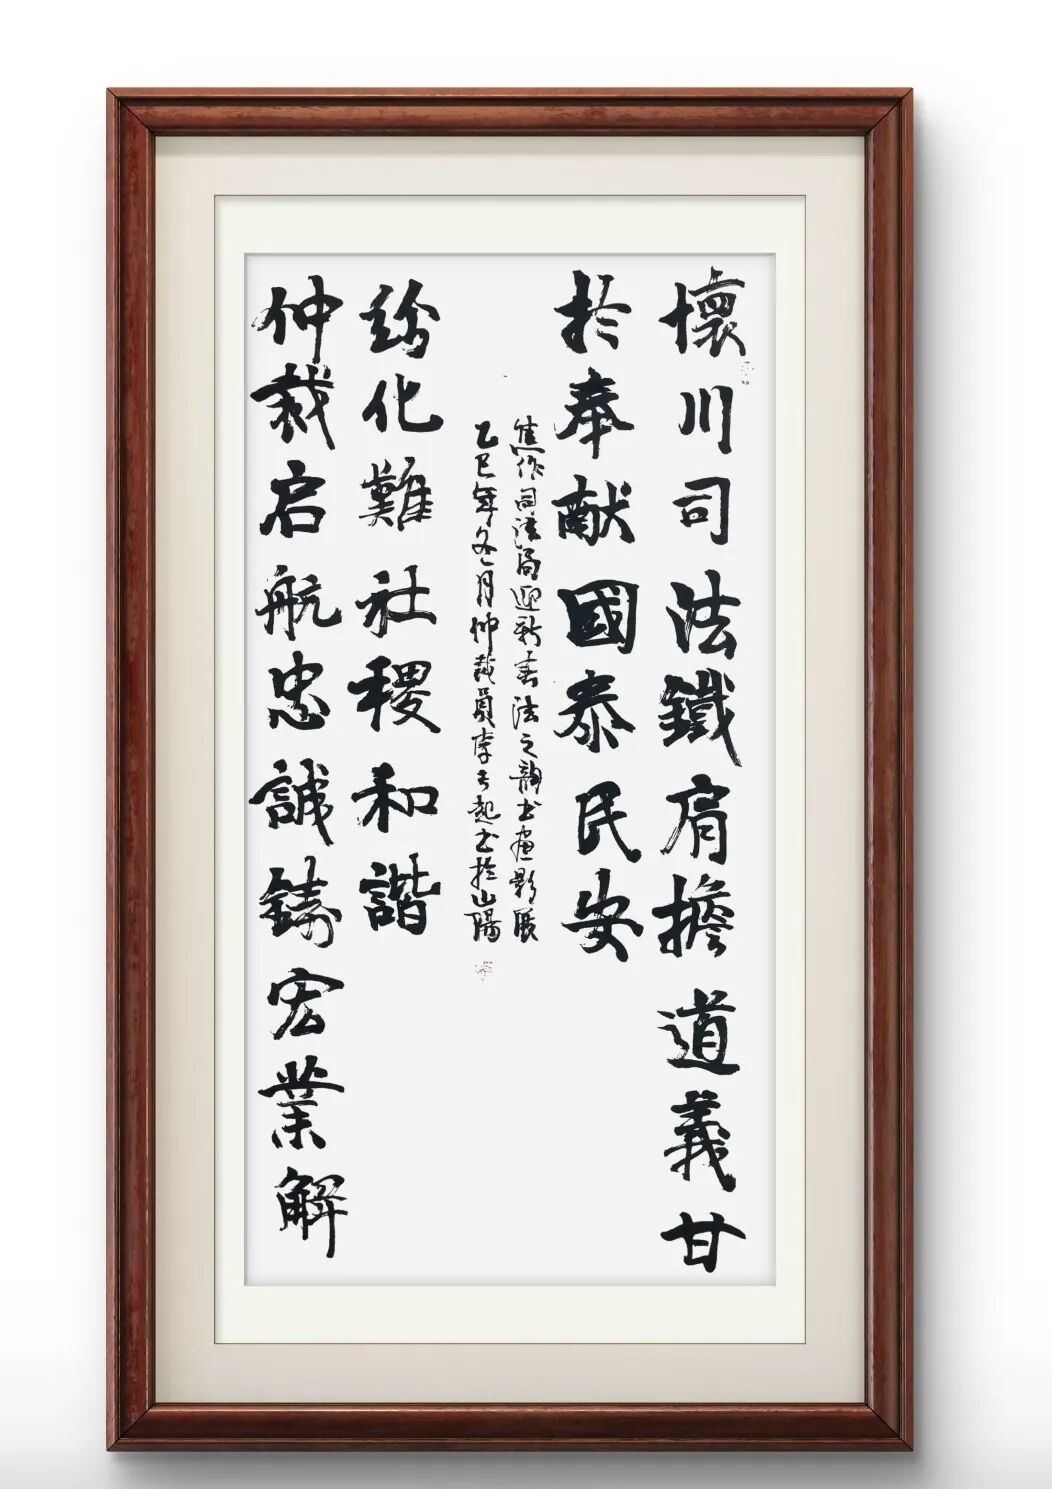 懷川司法鐵肩擔道義甘
於奉献國泰民安
仲裁启航忠誠鑄宏業解
紛化難社稷和諧
焦作司法局迎新春法之韻书畫影展
乙巳年冬月仲裁員李起书於山陽